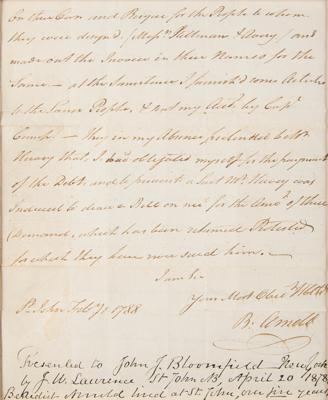 on their own and Risque for the People to whom
they were design'd, (Messrs Hillman & Avery) and
made out the Invoice in their Names for the
Same — at the Same time I furnish'd some Articles
to the Same People, & not my Acct. by Capt.
— they in my Absence pretended to Mr
that I had obligated myself for the payment
of the Debt, and to prevent a Suit Mr was
Induced to draw a Bill on me for the Amot. of three
Demand, which has been returned Protested
for which they have sued him. —
I am Sir
Your Most Obed
B. Arnold
St. John Feby 1788
Presented to John J. Bloomfield New York
by J. W. Lawrence St John N.B. April 20 1878
Benedict Arnold lived at St. John, over five years